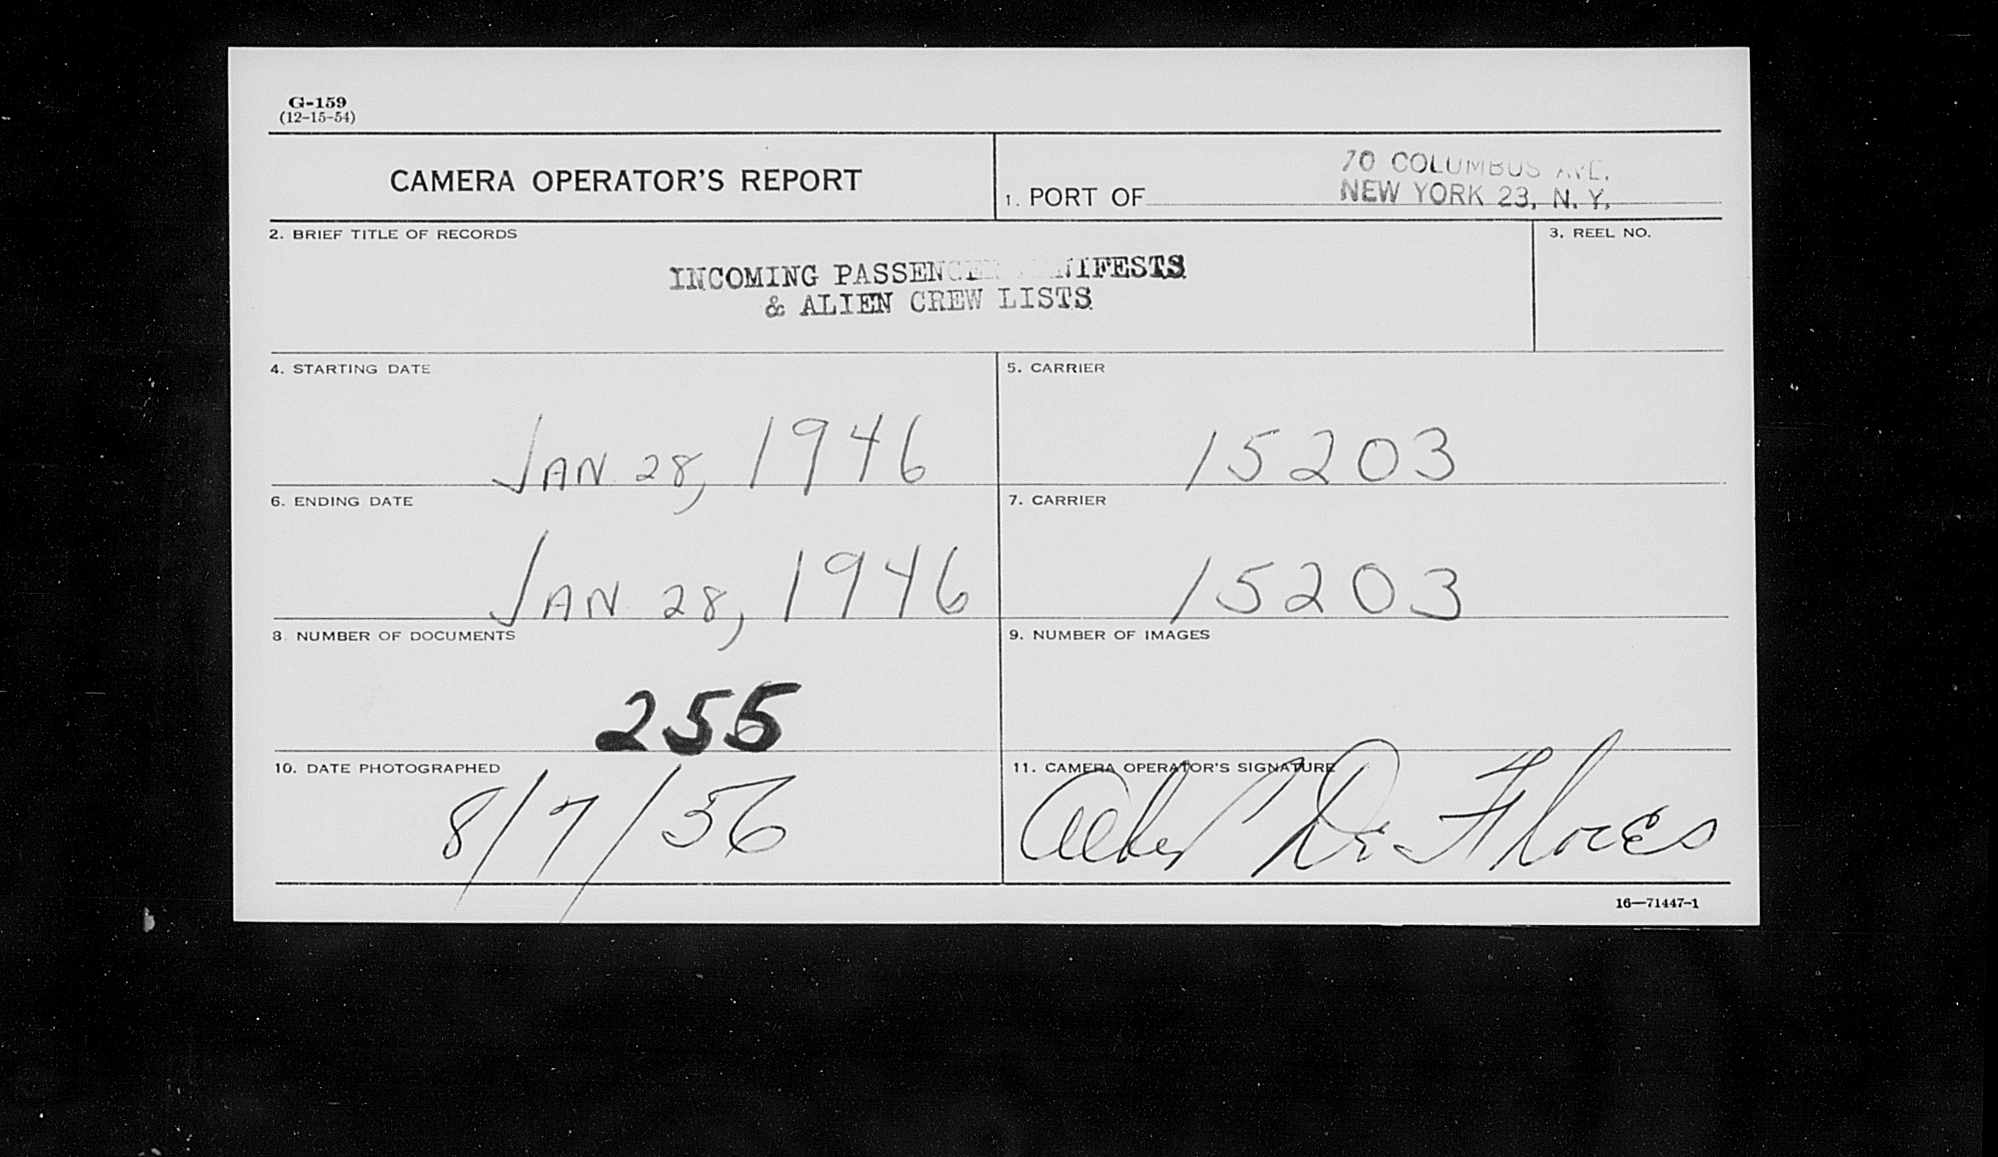 G-159
(12-15-54)
CAMERA OPERATOR'S REPORT
1. PORT OF
70 COLUMBUS AVE.
NEW YORK 23, N. Y.
2. BRIEF TITLE OF RECORDS
3. REEL NO.
INCOMING PASSENGER MANIFESTS
& ALIEN CREW LISTS
4. STARTING DATE
5. CARRIER
JAN 28, 1946
15203
6. ENDING DATE
7. CARRIER
JAN 28, 1946
15203
8. NUMBER OF DOCUMENTS
9. NUMBER OF IMAGES
255
10. DATE PHOTOGRAPHED
11. CAMERA OPERATOR'S SIGNATURE
8/7/56
De Flores
16—71447-1